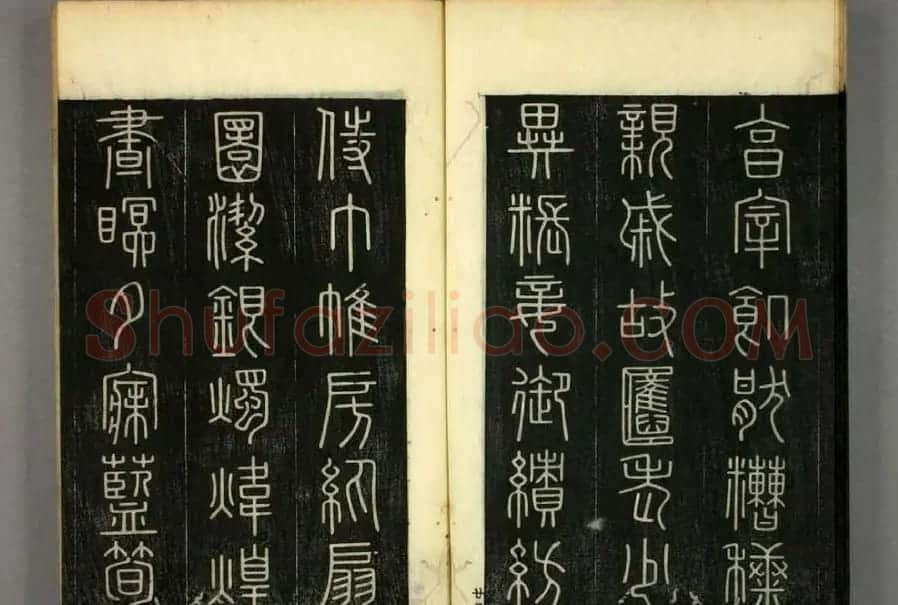 亯宰飢猒糟糠
親戚故舊老少
異粻妾御績紡
侍巾帷房紈扇
圓潔銀燭煒煌
晝瞑夕寐藍筍
Shufaziliao.COM